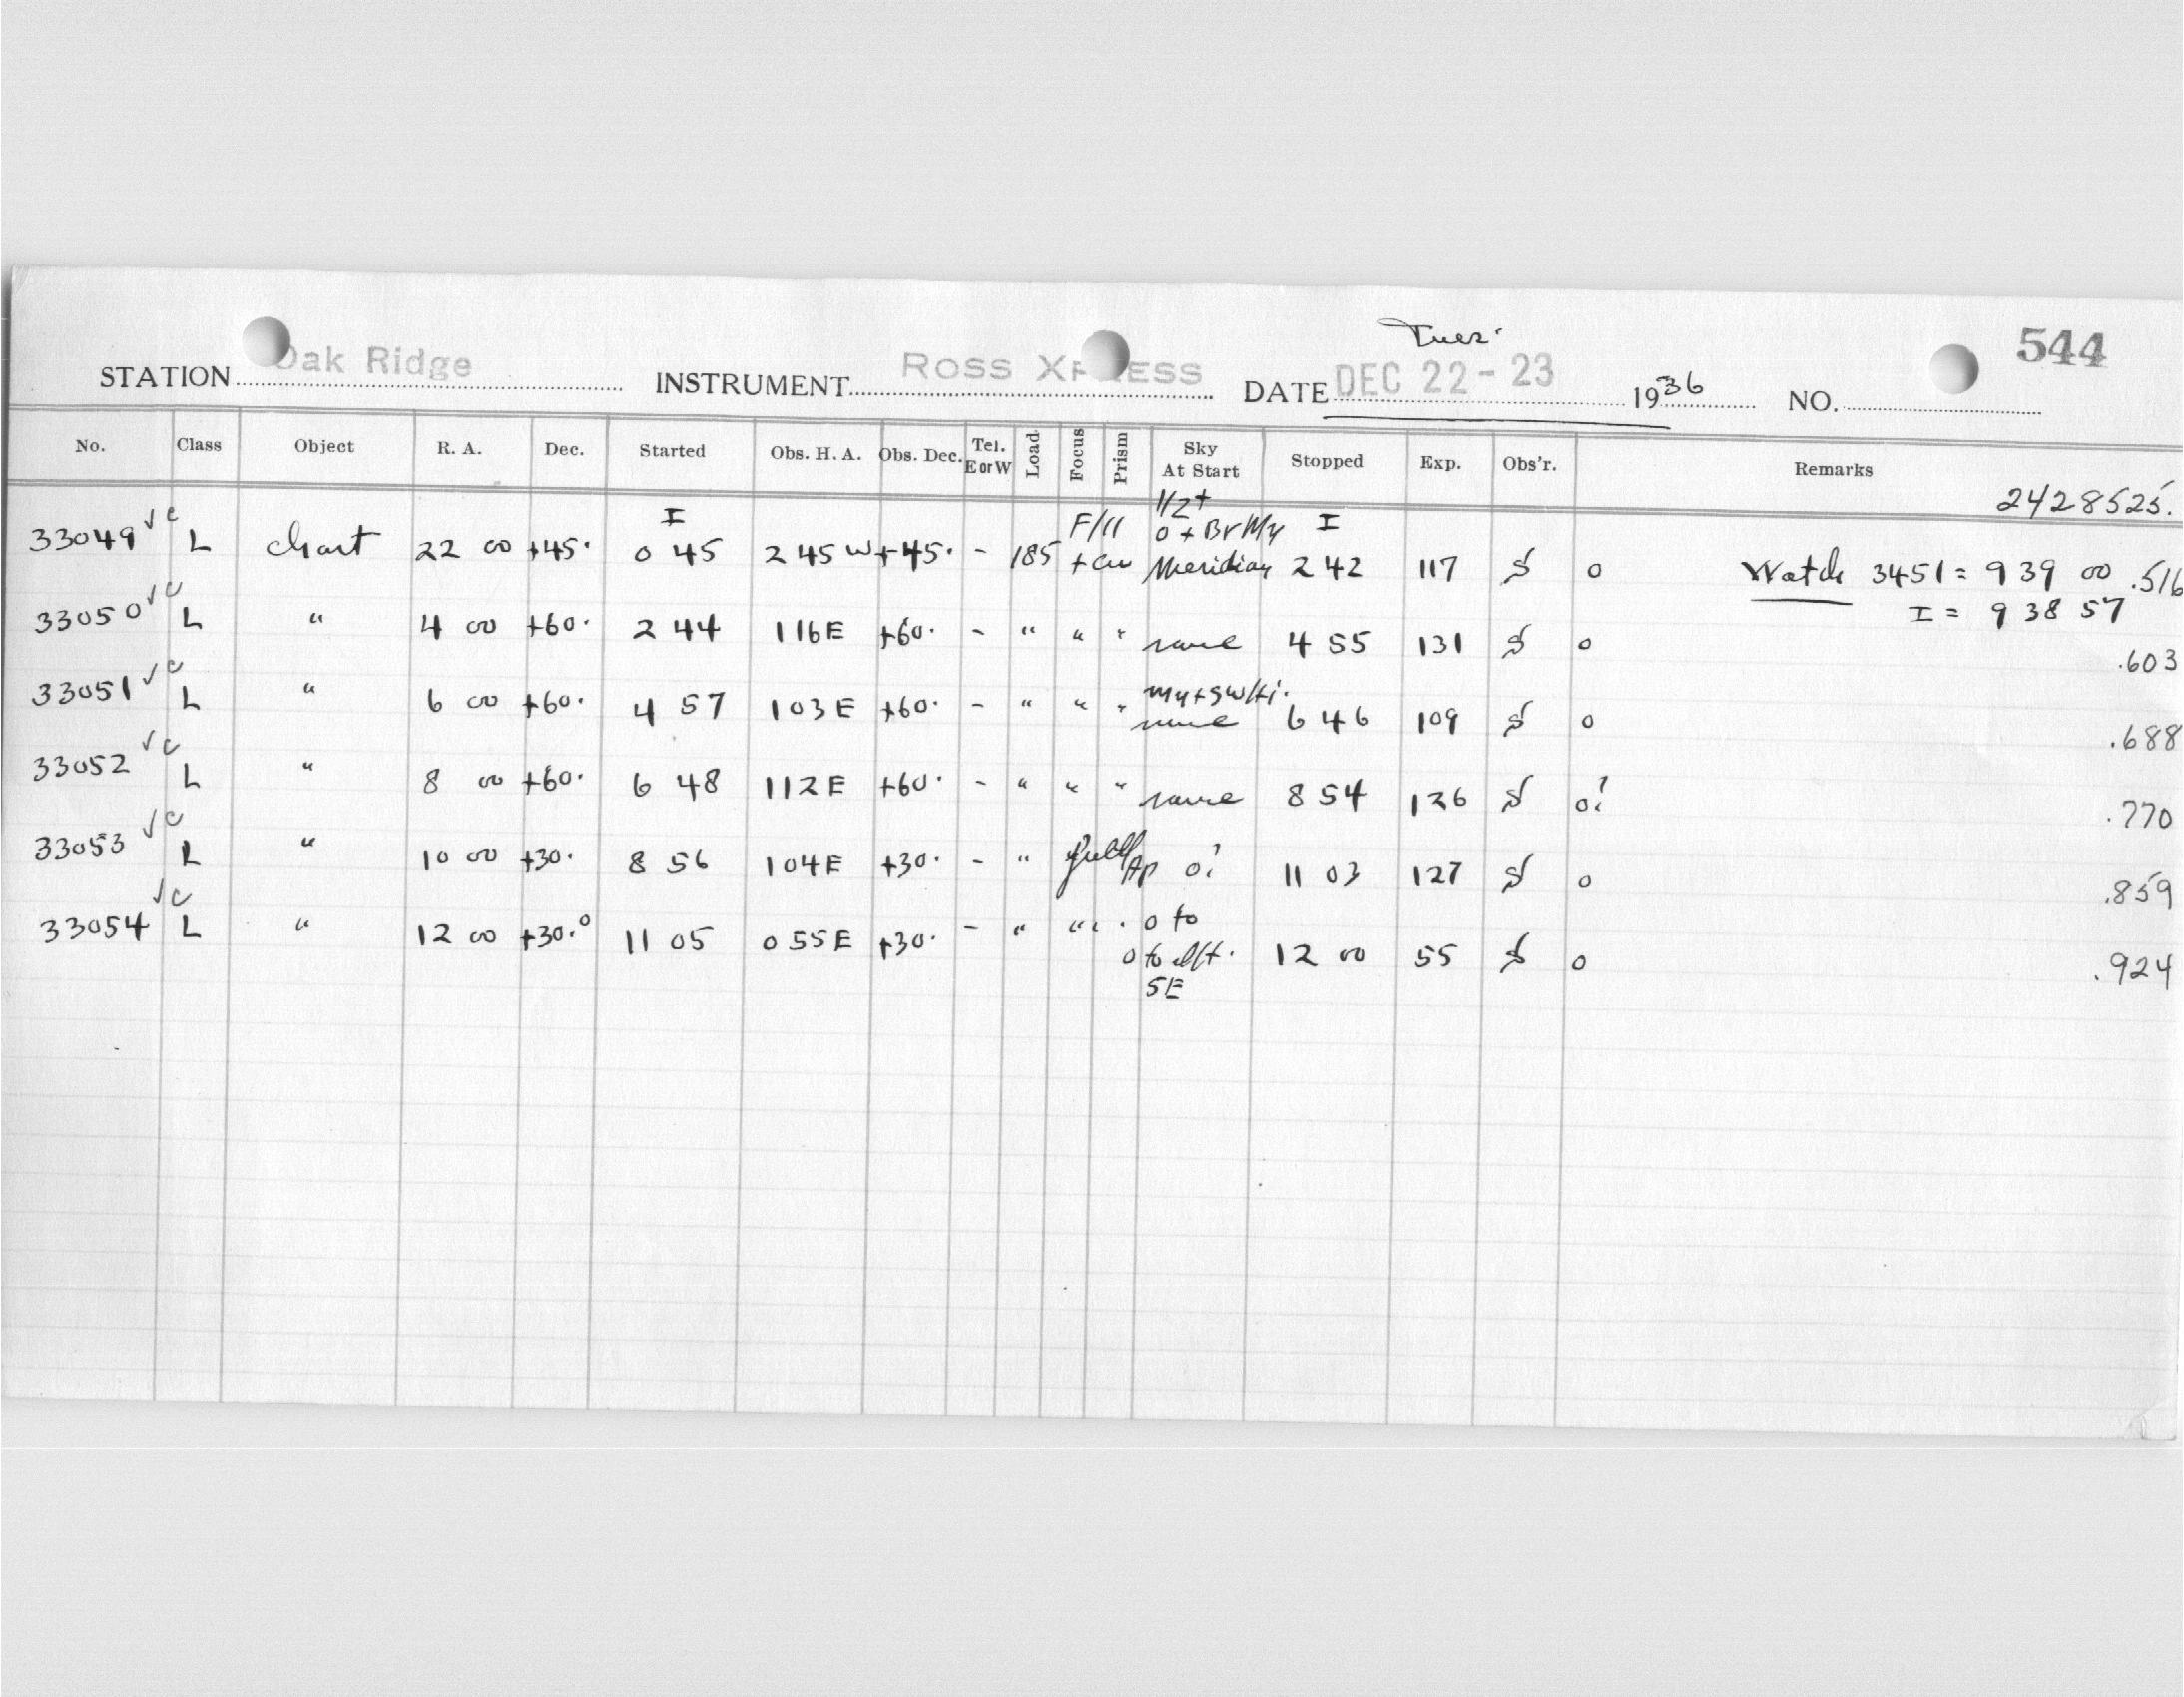 Tues.
544
STATION Oak Ridge INSTRUMENT ROSS XPRESS DATE DEC 22-23 1936 NO.
No. Class Object R. A. Dec. Started Obs. H. A. Obs. Dec. Tel. E or W Load Focus Prism Sky At Start Stopped Exp. Obs'r. Remarks
2428525.
I F/11 1/2+ I
33049 √c L chart 22 00 +45° 0 45 2 45 W +45° - 185 0 + Br My Meridian 2 42 117 0 Watch 3451 = 9 39 00 .516
I = 9 38 57
33050 √c L " 4 00 +60° 2 44 1 16 E +60° - " " " same 4 55 131 0 .603
33051 √c L " 6 00 +60° 4 57 1 03 E +60° - " " " same 6 46 109 0 .688
33052 √c L " 8 00 +60° 6 48 1 12 E +60° - " " " same 8 54 126 0? .770
33053 √c L " 10 00 +30° 8 56 1 04 E +30° - " full Ap 0? 11 03 127 0 .859
33054 √c L " 12 00 +30° 11 05 0 55 E +30° - " " " 0 to
0 to SE 12 00 55 0 .924